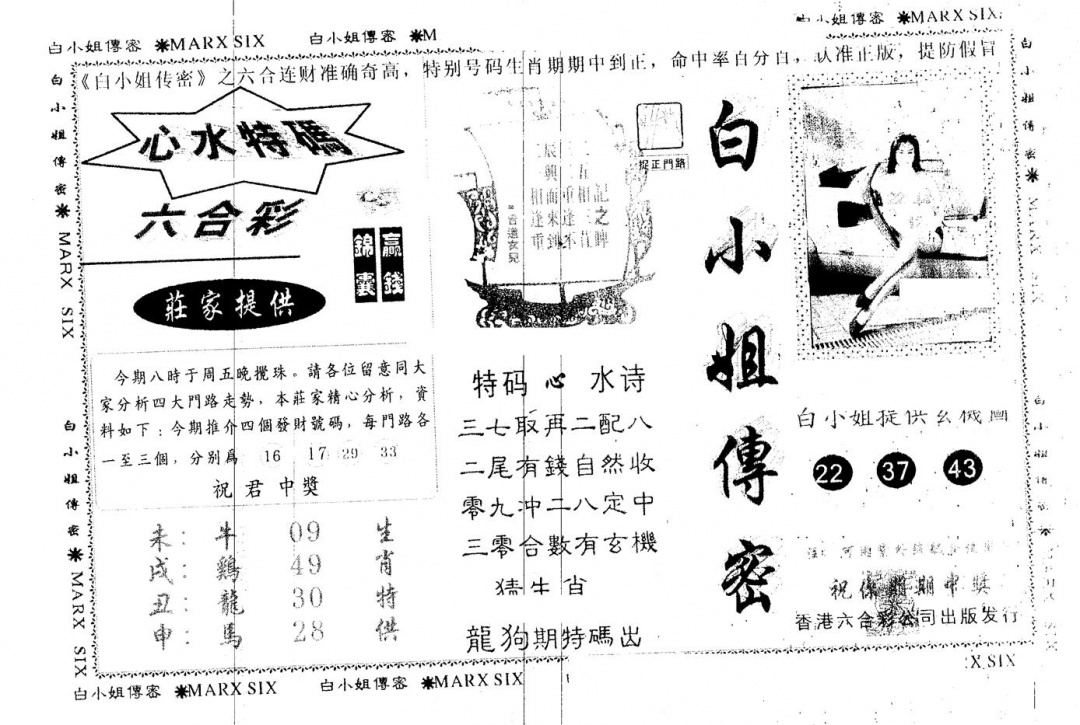 白小姐傳密 ※MARX SIX 白小姐傳密 ※M
白小姐傳密 ※MARX SIX
《白小姐传密》之六合连财准确奇高，特别号码生肖期期中到正，命中率百分百，认准正版，提防假冒
白小姐傳密 ※ MARX SIX
白小姐傳密 ※ MARX SIX
心水特碼
六合彩
錦囊
贏錢
莊家提供
今期八時于周五晚攪珠。請各位留意同大
家分析四大門路走勢，本莊家精心分析，資
料如下：今期推介四個發財號碼，每門路各
一至三個，分别爲 16 17 29 33
祝君中獎
未： 牛 09 生
戌： 鷄 49 肖
丑： 龍 30 特
申： 馬 28 供
捉正門路
特码 心 水诗
三七取再二配八
二尾有錢自然收
零九冲二八定中
三零合數有玄機
猜生肖
龍狗期特碼出
白小姐傳密
白小姐提供玄機圖
22 37 43
祝保期期中獎
香港六合彩公司出版发行
白小姐傳密 ※
白小姐傳密 ※MARX SIX 白小姐傳密 ※MARX SIX
X SIX